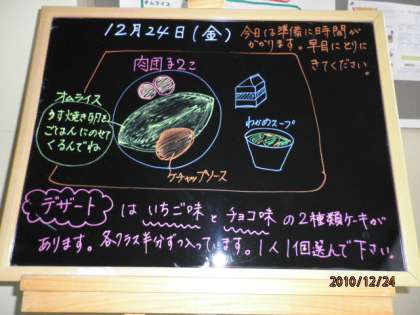 12月24日(金)
今日は準備に時間が
かかります。早目にとりに
きてください。
肉団まりこ
オムライス
うす焼き卵を
ごはんにのせて
くるんでね
わかめスープ
ケチャップソース
デザート は いちご味 と チョコ味 の2種類ケーキが
あります。各クラス半分ずつ入っています。1人1個選んで下さい。
2010/12/24